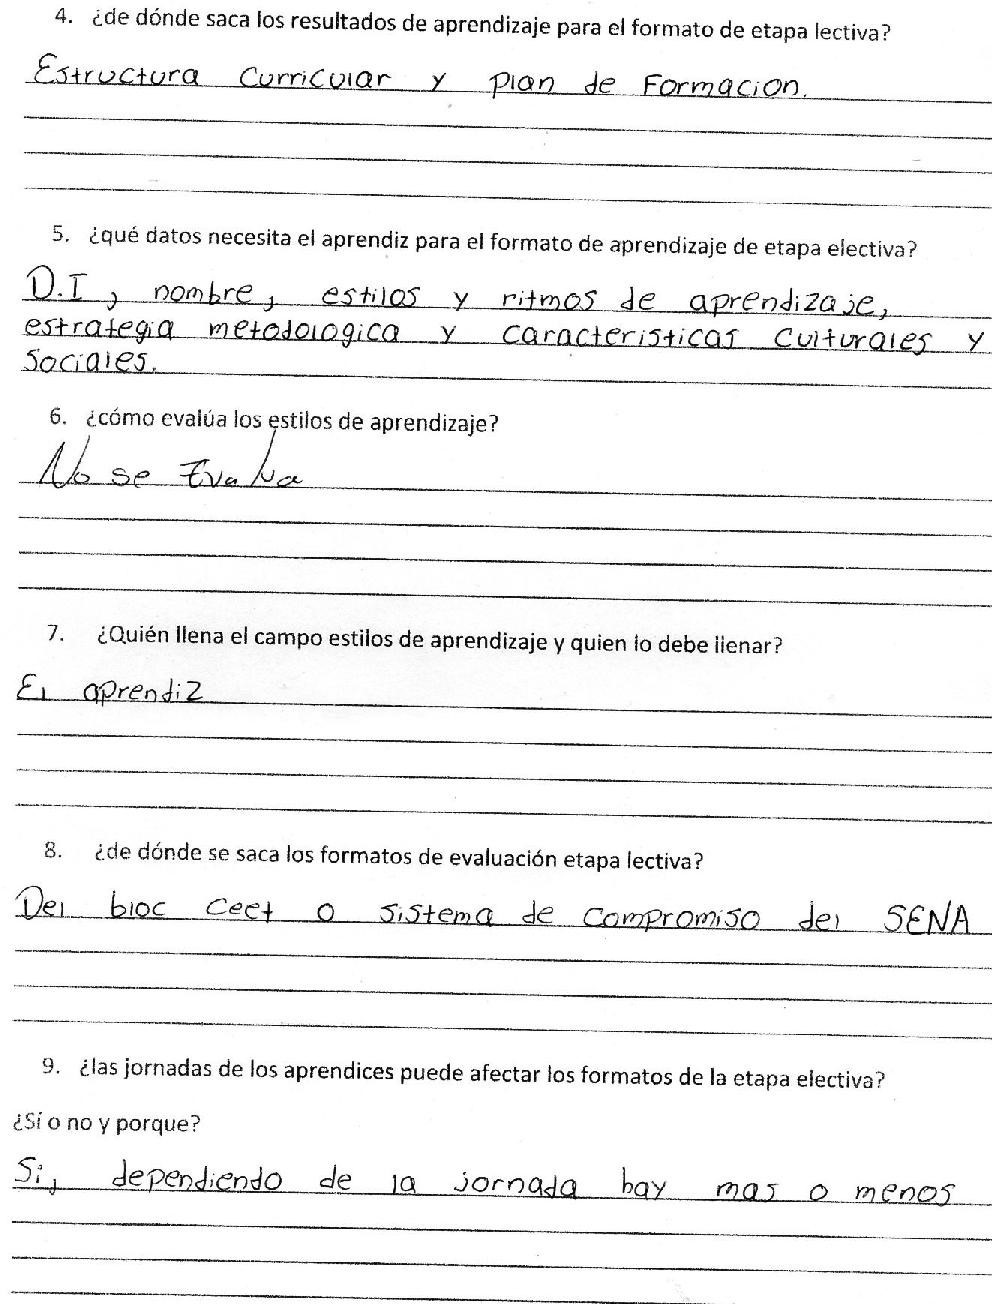 4. ¿de dónde saca los resultados de aprendizaje para el formato de etapa lectiva?
Estructura Curricular y plan de Formacion.
5. ¿qué datos necesita el aprendiz para el formato de aprendizaje de etapa electiva?
D.I, nombre, estilos y ritmos de aprendizaje,
estrategia metodologica y caracteristicas Culturales y
Sociales.
6. ¿cómo evalúa los estilos de aprendizaje?
No se Evalua
7. ¿Quién llena el campo estilos de aprendizaje y quien lo debe llenar?
El aprendiz
8. ¿de dónde se saca los formatos de evaluación etapa lectiva?
Del bloc ceet o sistema de compromiso del SENA
9. ¿las jornadas de los aprendices puede afectar los formatos de la etapa electiva?
¿Sí o no y porque?
Si, dependiendo de la jornada hay mas o menos